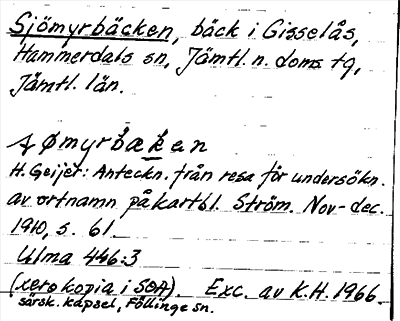 Sjömyrbäcken, bäck i Gisselås,
Hammerdals sn, Jämtl. n. doms tg,
Jämtl. län.
ʃømyrbæken
H. Geijer: Anteckn. från resa för undersökn.
av ortnamn på kartbl. Ström. Nov-dec.
1910, s. 61.
Ulma 446:3
(xerokopia i SOA). Exc. av K.H. 1966.
särsk. kapsel, Föllinge sn.